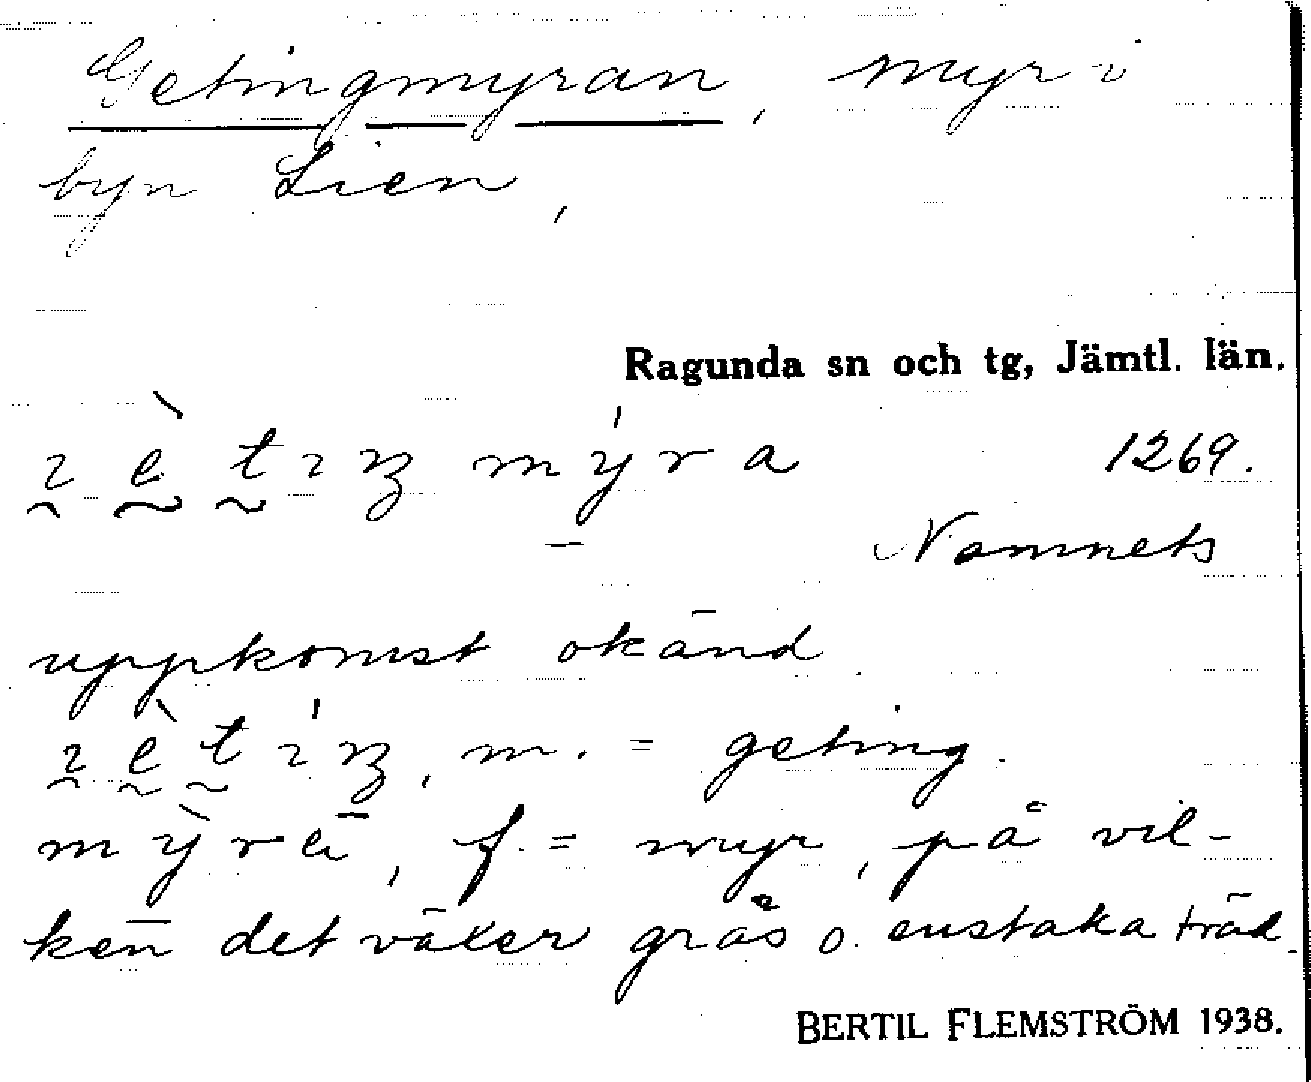 Getingmyran, myr i
byn Lien,
Ragunda sn och tg, Jämtl. län.
1269.
Namnets
uppkomst okänd
m. = geting.
f. = myr, på vil-
ken det växer gräs o. enstaka träd.
BERTIL FLEMSTRÖM 1938.